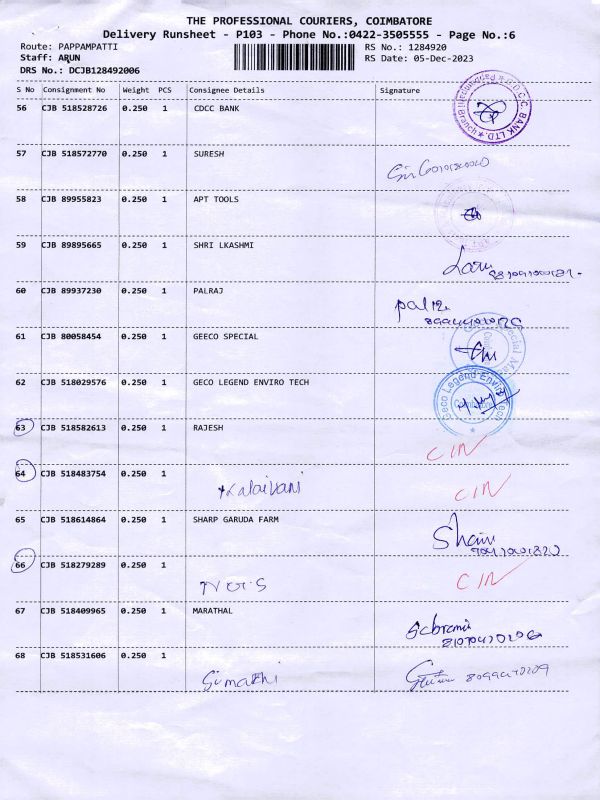 THE PROFESSIONAL COURIERS, COIMBATORE
Delivery Runsheet - P103 - Phone No.:0422-3505555 - Page No.:6
Route: PAPPAMPATTI RS No.: 1284920
Staff: ARUN RS Date: 05-Dec-2023
DRS No.: DCJB128492006
S No Consignment No Weight PCS Consignee Details Signature
56 CJB 518528726 0.250 1 CDCC BANK
57 CJB 518572770 0.250 1 SURESH
58 CJB 89955823 0.250 1 APT TOOLS
59 CJB 89895665 0.250 1 SHRI LKASHMI
60 CJB 89937230 0.250 1 PALRAJ
61 CJB 80058454 0.250 1 GEECO SPECIAL
62 CJB 518029576 0.250 1 GECO LEGEND ENVIRO TECH
Geco Legend Enviro Tech
63 CJB 518582613 0.250 1 RAJESH CIN
64 CJB 518483754 0.250 1 Kalaivani CIN
65 CJB 518614864 0.250 1 SHARP GARUDA FARM
66 CJB 518279289 0.250 1 CIN
67 CJB 518409965 0.250 1 MARATHAL
68 CJB 518531606 0.250 1 Sumathi